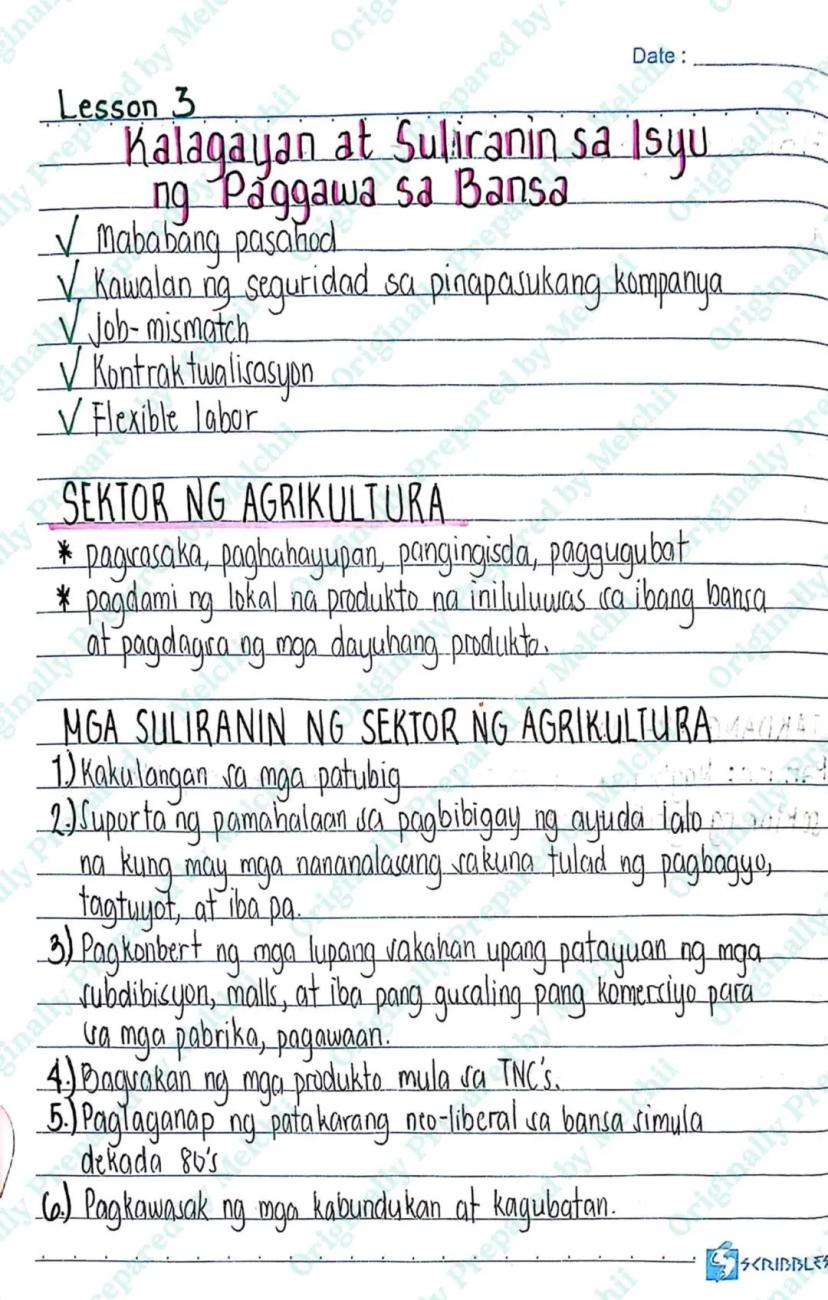 Date :
Lesson 3
Kalagayan at Suliranin sa Isyu
ng Paggawa sa Bansa
√ Mababang pasahod
√ Kawalan ng seguridad sa pinapasukang kompanya
√ Job-mismatch
√ Kontraktwalisasyon
√ Flexible labor
SEKTOR NG AGRIKULTURA
* pagsasaka, paghahayupan, pangingisda, paggugubat
* pagdami ng lokal na produkto na iniluluwas sa ibang bansa
at pagdagsa ng mga dayuhang produkto.
MGA SULIRANIN NG SEKTOR NG AGRIKULTURA
1) Kakulangan sa mga patubig
2.) Suporta ng pamahalaan sa pagbibigay ng ayuda lalo
na kung may mga nananalasang sakuna tulad ng pagbagyo,
tagtuyot, at iba pa.
3) Pagkonbert ng mga lupang sakahan upang patayuan ng mga
subdibisyon, malls, at iba pang gusaling pang komersiyo para
sa mga pabrika, pagawaan.
4.) Bagsakan ng mga produkto mula sa TNC's.
5.) Paglaganap ng patakarang neo-liberal sa bansa simula
dekada 80's
6.) Pagkawasak ng mga kabundukan at kagubatan.
SCRIBBLES
Originally Prepared by Melchii